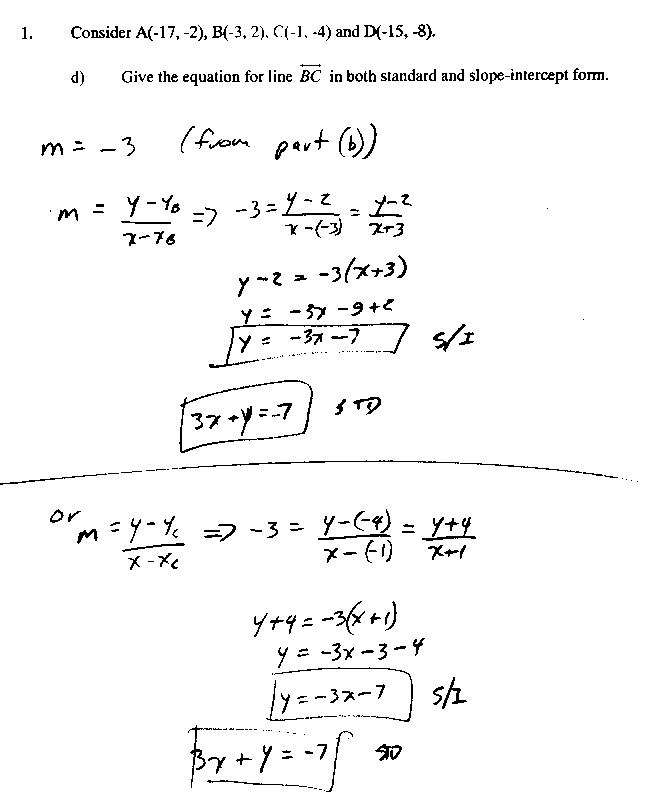 1. Consider A(-17, -2), B(-3, 2), C(-1, -4) and D(-15, -8).
d) Give the equation for line BC in both standard and slope-intercept form.
m = -3 (from part (b))
m = (y - y_B)/(x - x_B) => -3 = (y - 2)/(x - (-3)) = (y - 2)/(x + 3)
y - 2 = -3(x + 3)
y = -3x - 9 + 2
y = -3x - 7 S/I
3x + y = -7 STD
or m = (y - y_c)/(x - x_c) => -3 = (y - (-4))/(x - (-1)) = (y + 4)/(x + 1)
y + 4 = -3(x + 1)
y = -3x - 3 - 4
y = -3x - 7 S/I
3x + y = -7 STD